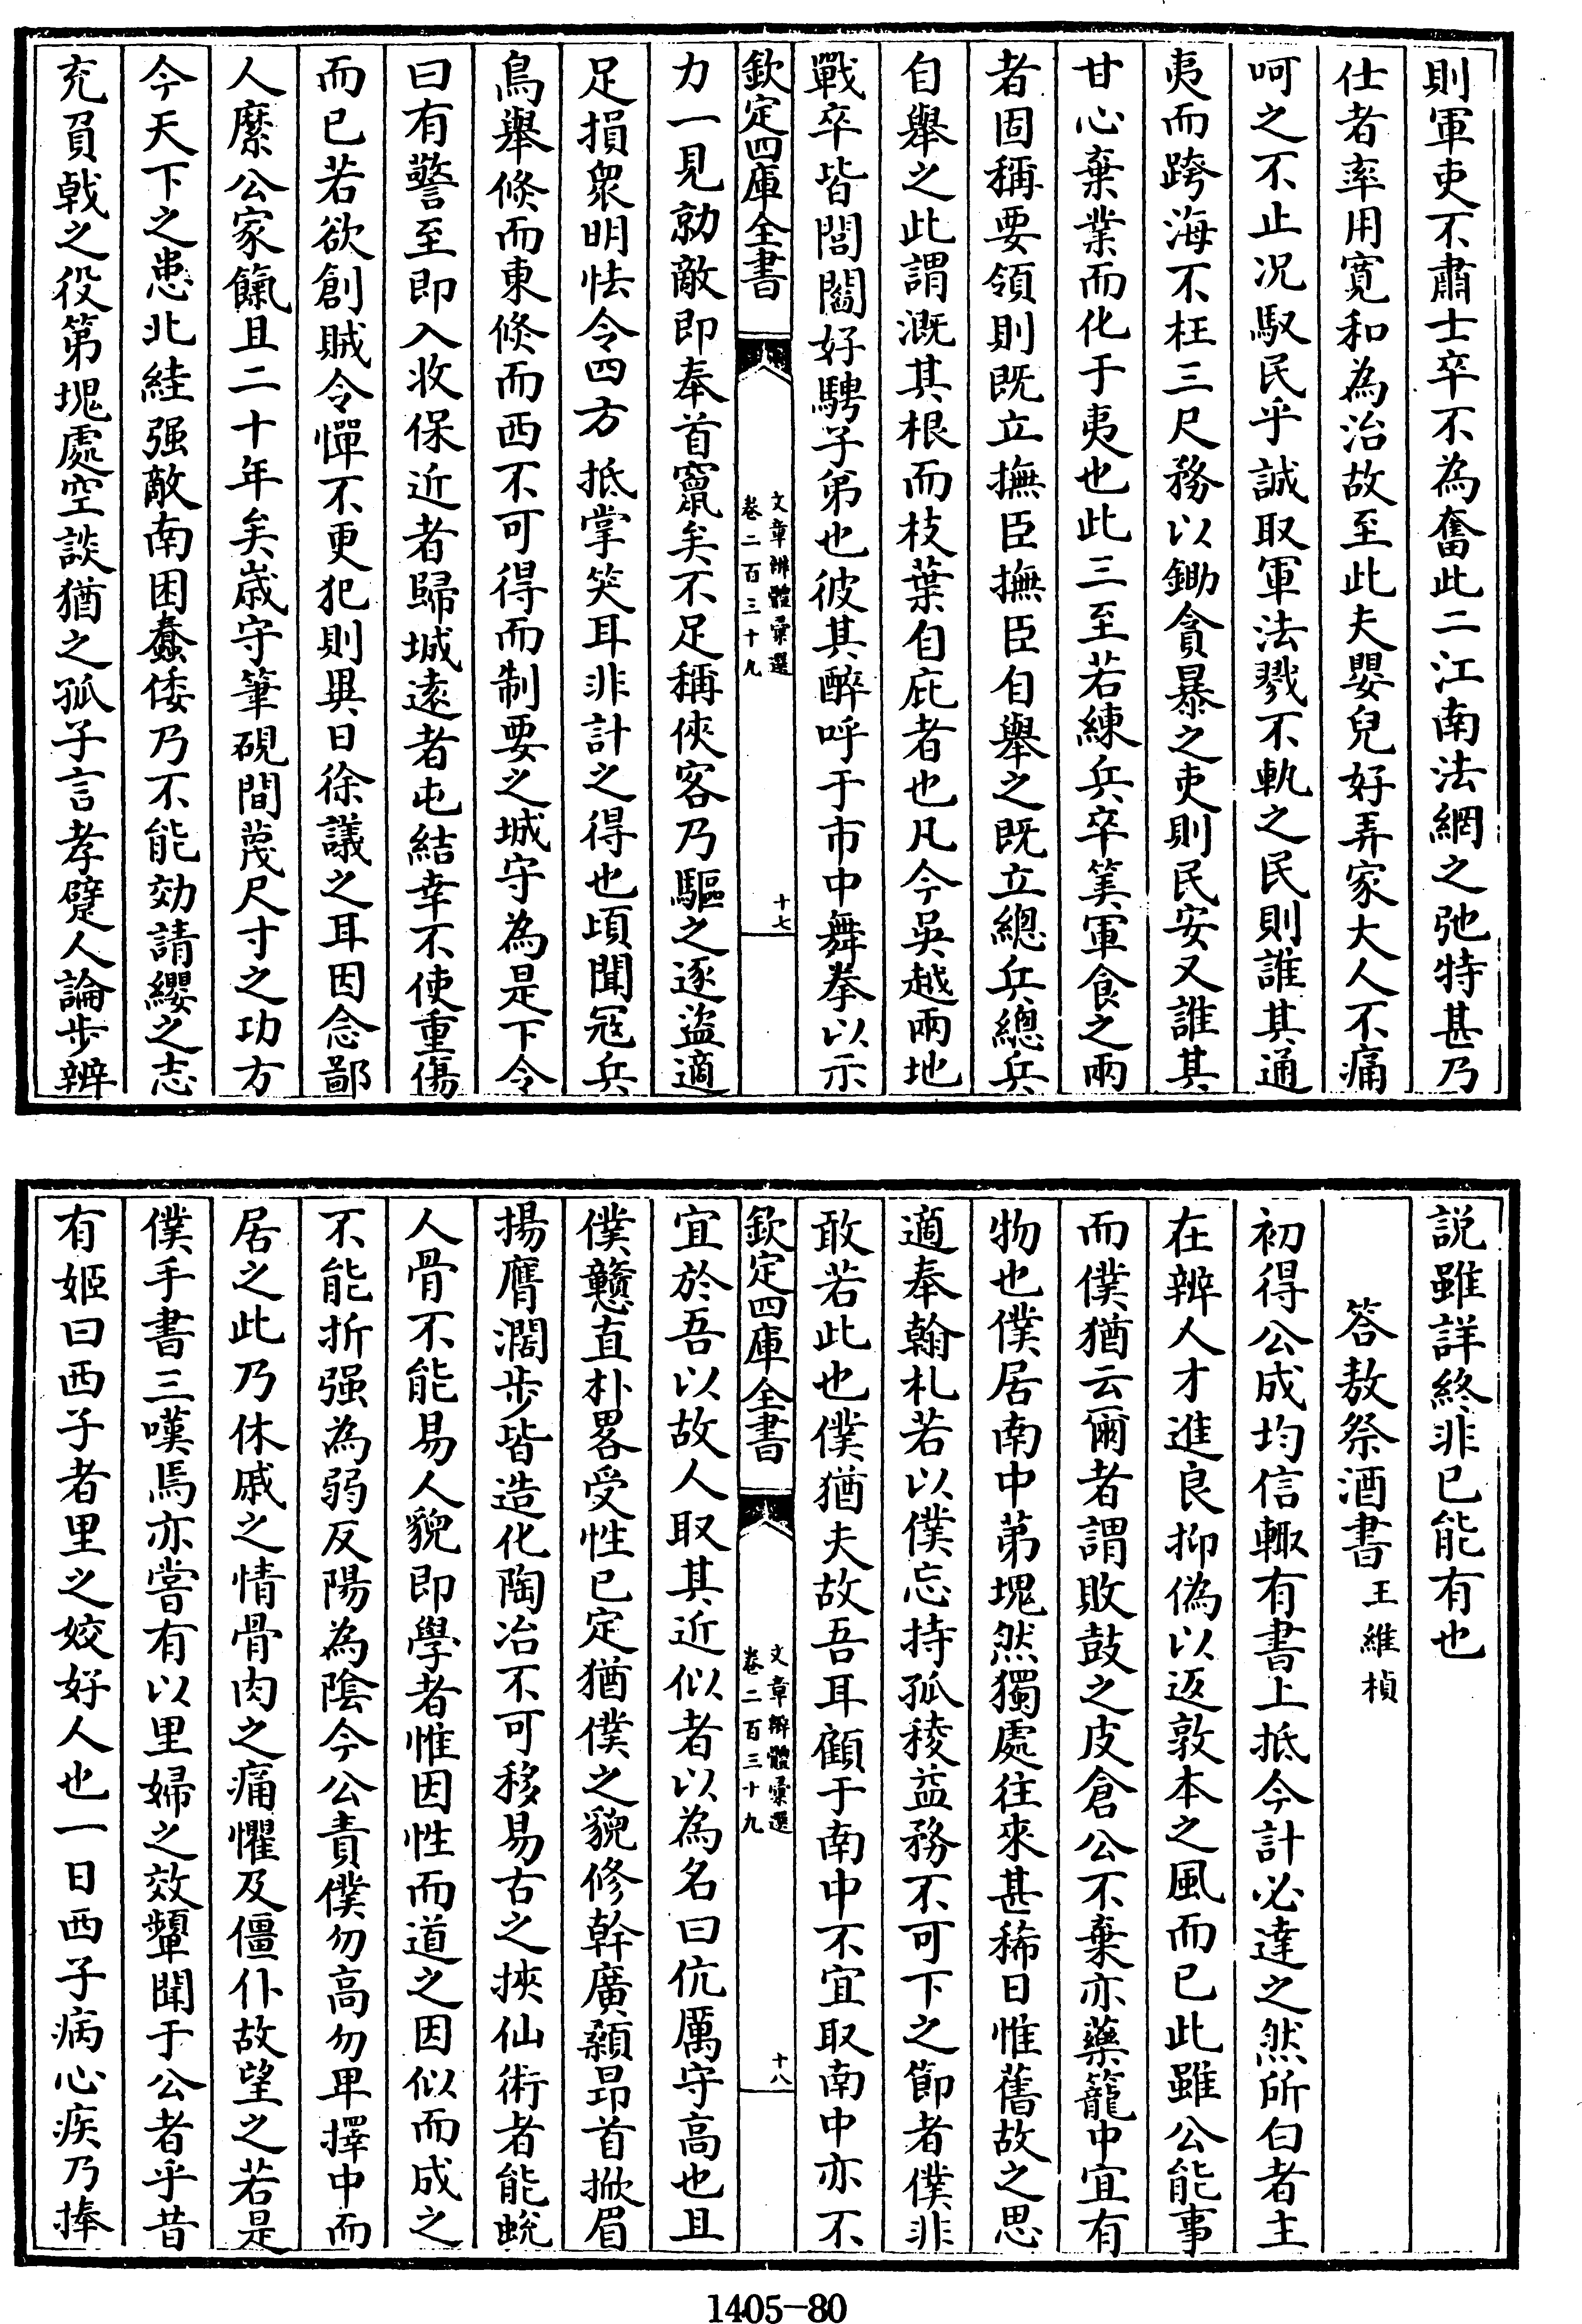 則軍吏不肅士卒不為奮此二江南法網之弛特甚乃
仕者率用寛和為治故至此夫嬰兒好弄家大人不痛
呵之不止况馭民乎誠取軍法戮不軌之民則誰其通
夷而跨海不枉三尺務以鋤貪暴之吏則民安又誰其
甘心棄業而化于夷也此三至若練兵卒筭軍食之兩
者固稱要領則既立撫臣撫臣自舉之既立總兵總兵
自舉之此謂溉其根而枝葉自庇者也凡今吳越兩地
戰卒皆閭閻好騁子弟也彼其醉呼于市中舞拳以示
欽定四庫全書
文章辨體彙選
卷二百三十九
十七
力一見勍敵即奉首竄矣不足稱俠客乃驅之逐盜適
足損衆明怯令四方抵掌笑耳非計之得也頃聞冦兵
鳥舉倏而東倏而西不可得而制要之城守為是下令
曰有警至即入收保近者歸城遠者屯結幸不使重傷
而已若欲創賊令憚不更犯則異日徐議之耳因念鄙
人縻公家餼且二十年矣歳守筆硯間蔑尺寸之功方
今天下之患北絓强敵南困蠢倭乃不能効請纓之志
充負戟之役第塊處空談猶之孤子言孝躄人論步辨
説雖詳終非已能有也
答敖祭酒書 王維楨
初得公成均信輙有書上抵今計必達之然所白者主
在辨人才進良抑偽以返敦本之風而已此雖公能事
而僕猶云爾者謂敗鼓之皮倉公不棄亦藥籠中宜有
物也僕居南中第塊然獨處往來甚稀日惟舊故之思
適奉翰札若以僕忘持孤稜益務不可下之節者僕非
敢若此也僕猶夫故吾耳顧于南中不宜取南中亦不
欽定四庫全書
文章辨體彙選
卷二百三十九
十八
宜於吾以故人取其近似者以為名曰伉厲守高也且
僕戇直朴畧受性已定猶僕之貌修幹廣顙昻首掀眉
揚膺濶步皆造化陶冶不可移易古之挾仙術者能蛻
人骨不能易人貌即學者惟因性而道之因似而成之
不能折强為弱反陽為隂今公責僕勿高勿卑擇中而
居之此乃休戚之情骨肉之痛懼及僵仆故望之若是
僕手書三嘆焉亦嘗有以里婦之效顰聞于公者乎昔
有姬曰西子者里之姣好人也一日西子病心疾乃捧
1405-80